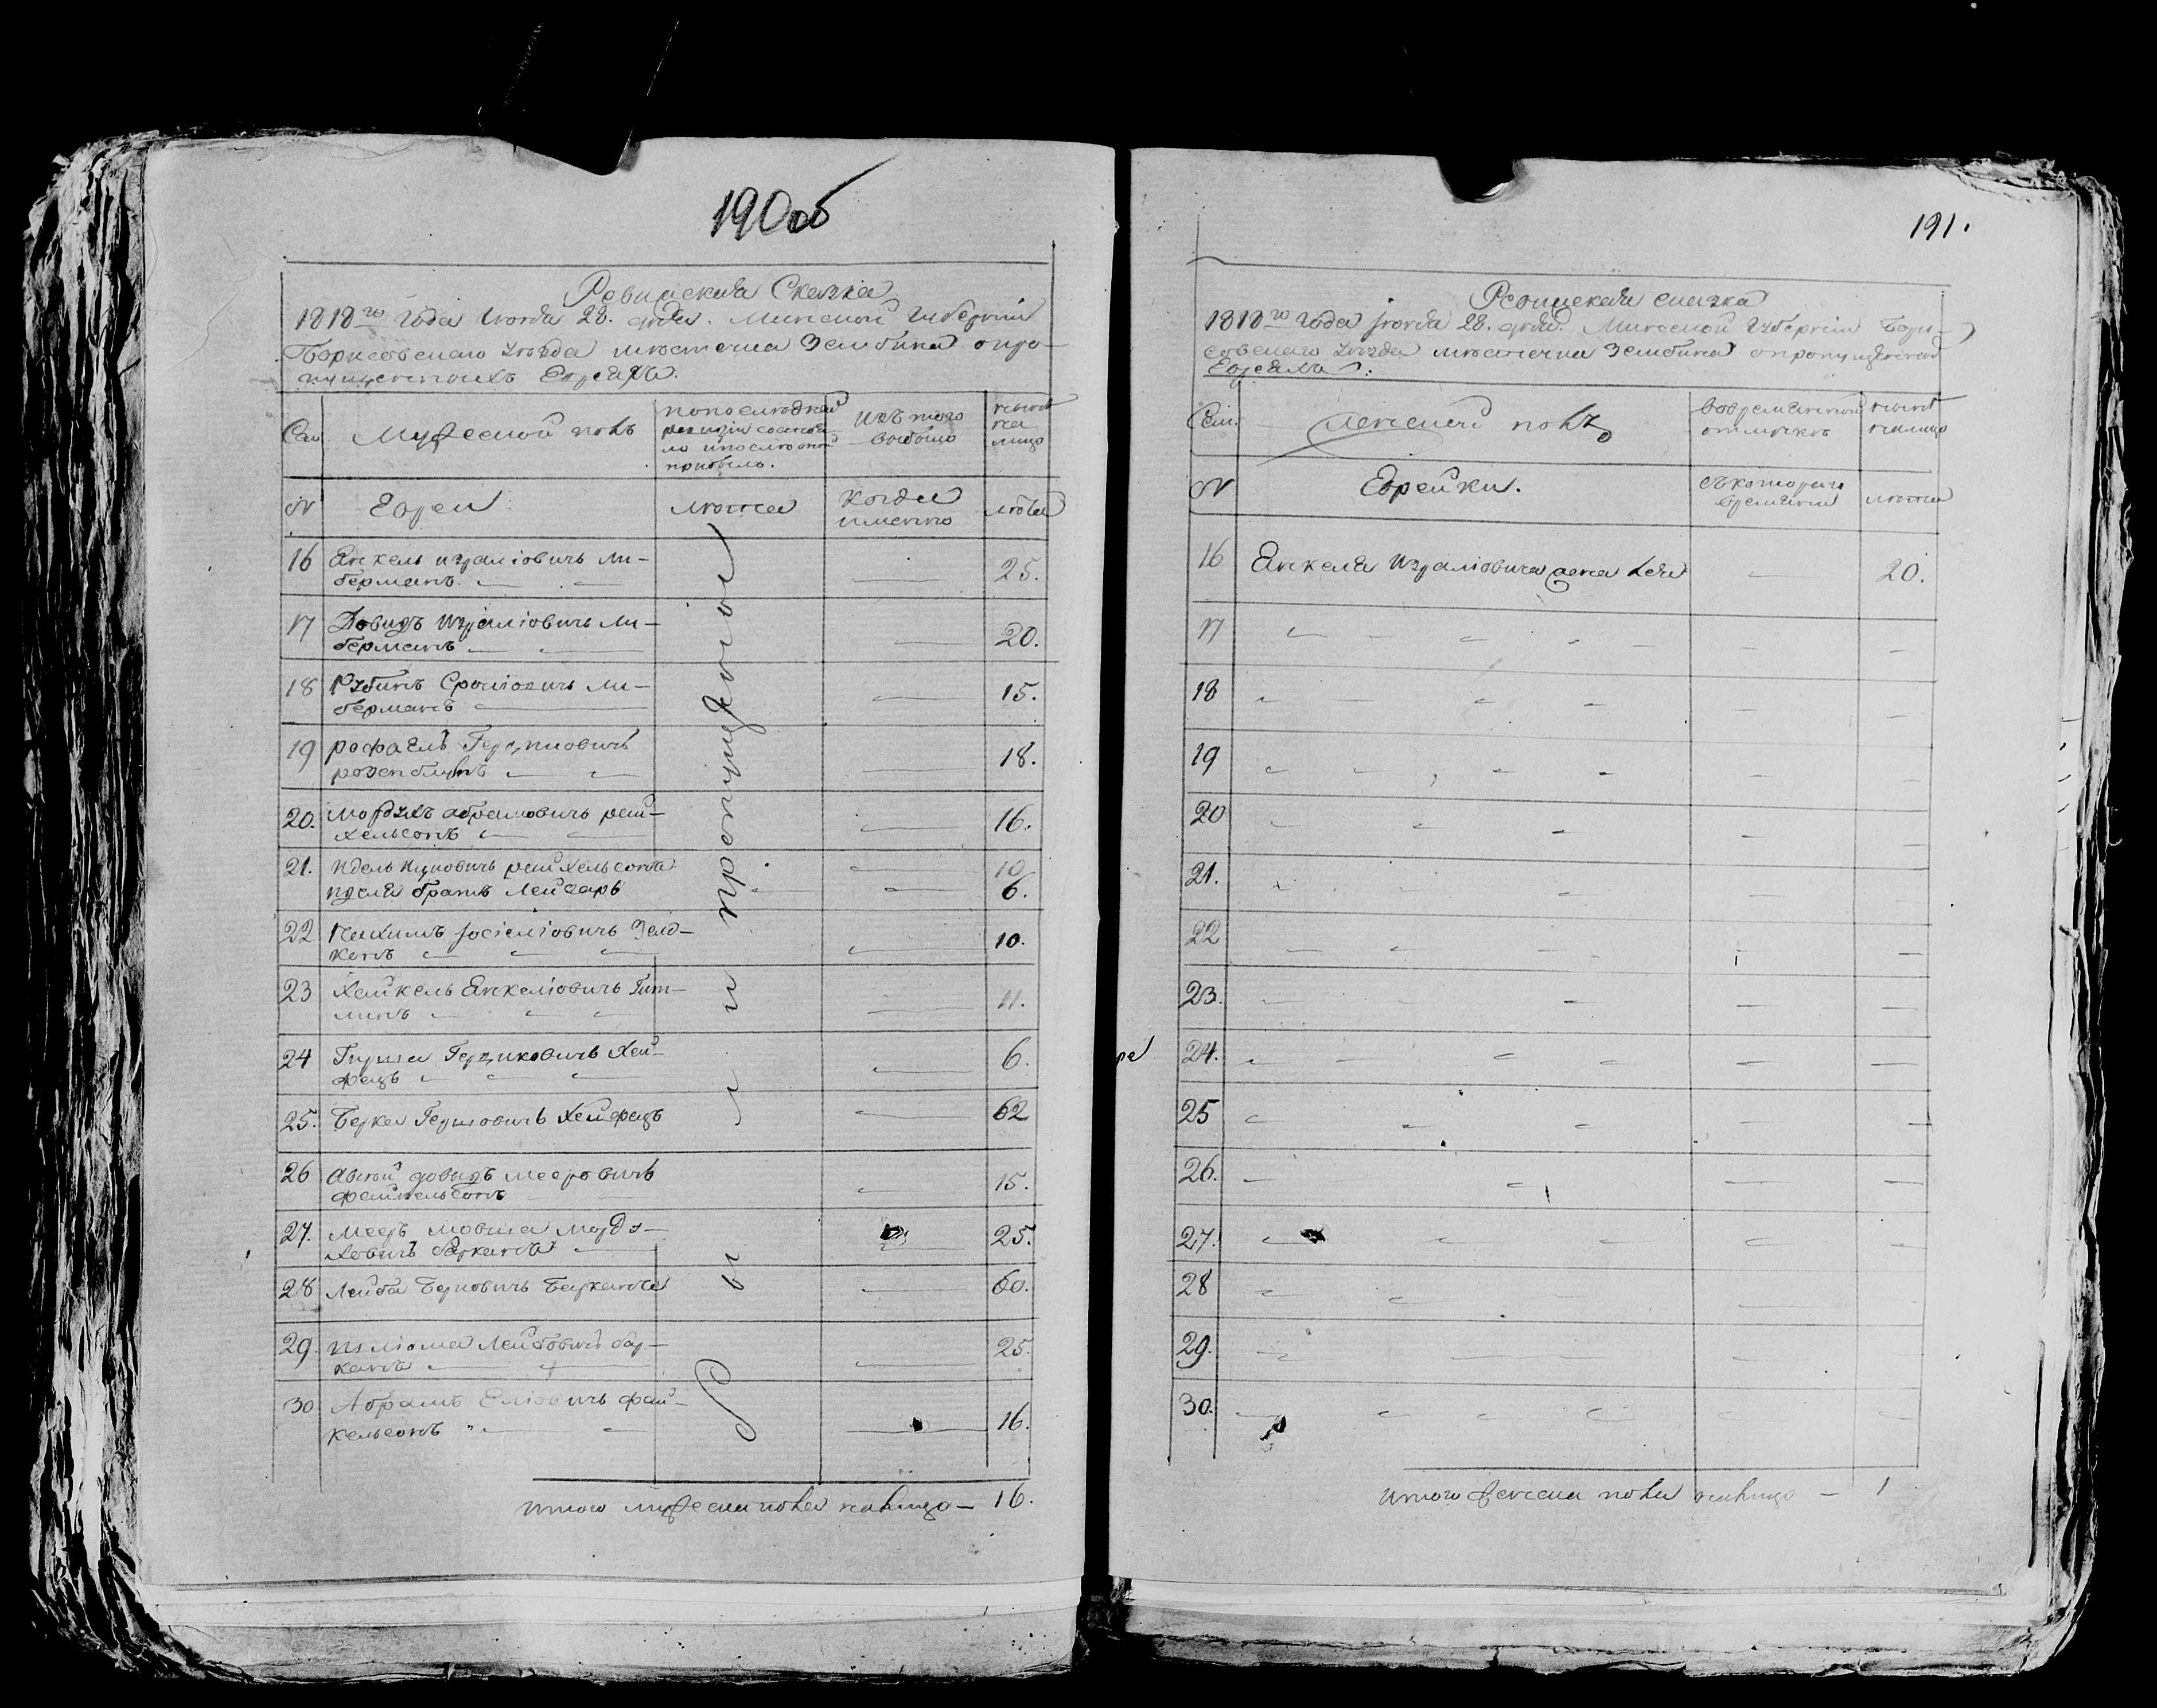 190 об
Ревизская Сказка
1818го года июня 28. дня. Минской Губернии
Борисовского уезда местечка Зембина о про-
пущенныхъ Евреяхъ.
Сем. Мужеской полъ
по последней ревизіи состояло и после оной прибыло.
Изъ того выбыло
ныне на лицо
№ Евреи лета когда именно лета
16 Янкель Израліовичъ Ли-
берманъ 25.
17 Довидъ Израліовичъ Ли-
берманъ 20.
18 Рубинъ Сроліовичъ Ли-
берманъ 15.
19 рафаелъ Герцыковичъ
розенблумъ 18.
20. Мордухъ абрамовичъ рай-
хельсонъ 16.
21. Идель Ицковичъ райхельсонъ 10
иделя братъ Лейзаръ 6.
22 Нахимъ Іосіеліовичъ Зелд-
конъ 10.
23 Хайкель Янкеліовичъ Гит-
линъ 11.
24 Гирша Герцыковичъ Хей-
фецъ 6.
25. Берка Гершовичъ Хейфецъ 62
26 довидъ мееровичъ
файкельсонъ 15.
27. Мееръ мовша Морду-
ховичъ баркань 25.
28 Лейба Берковичъ Баркань 60.
29. Шліома Лейбовичъ бар-
кань 25.
30 Абрамъ Еліовичъ фай-
кельсонъ 16.
были пропущены
итого мужеска пола налицо — 16.
191.
Ревизская сказка
1818го года июня 28. дня. Минской Губерніи Бори-
совского уезда местечка Зембина о пропущенной
Евреямъ:
Сем. Женской полъ
во временной отлучке
ныне налицо
№ Еврейки. съ которого времени лета
16 Янкеля Израліовича жена Хея 20.
17
18
19
20
21.
22
23.
24.
25
26.
27.
28
29.
30.
итого женска пола налицо — 1